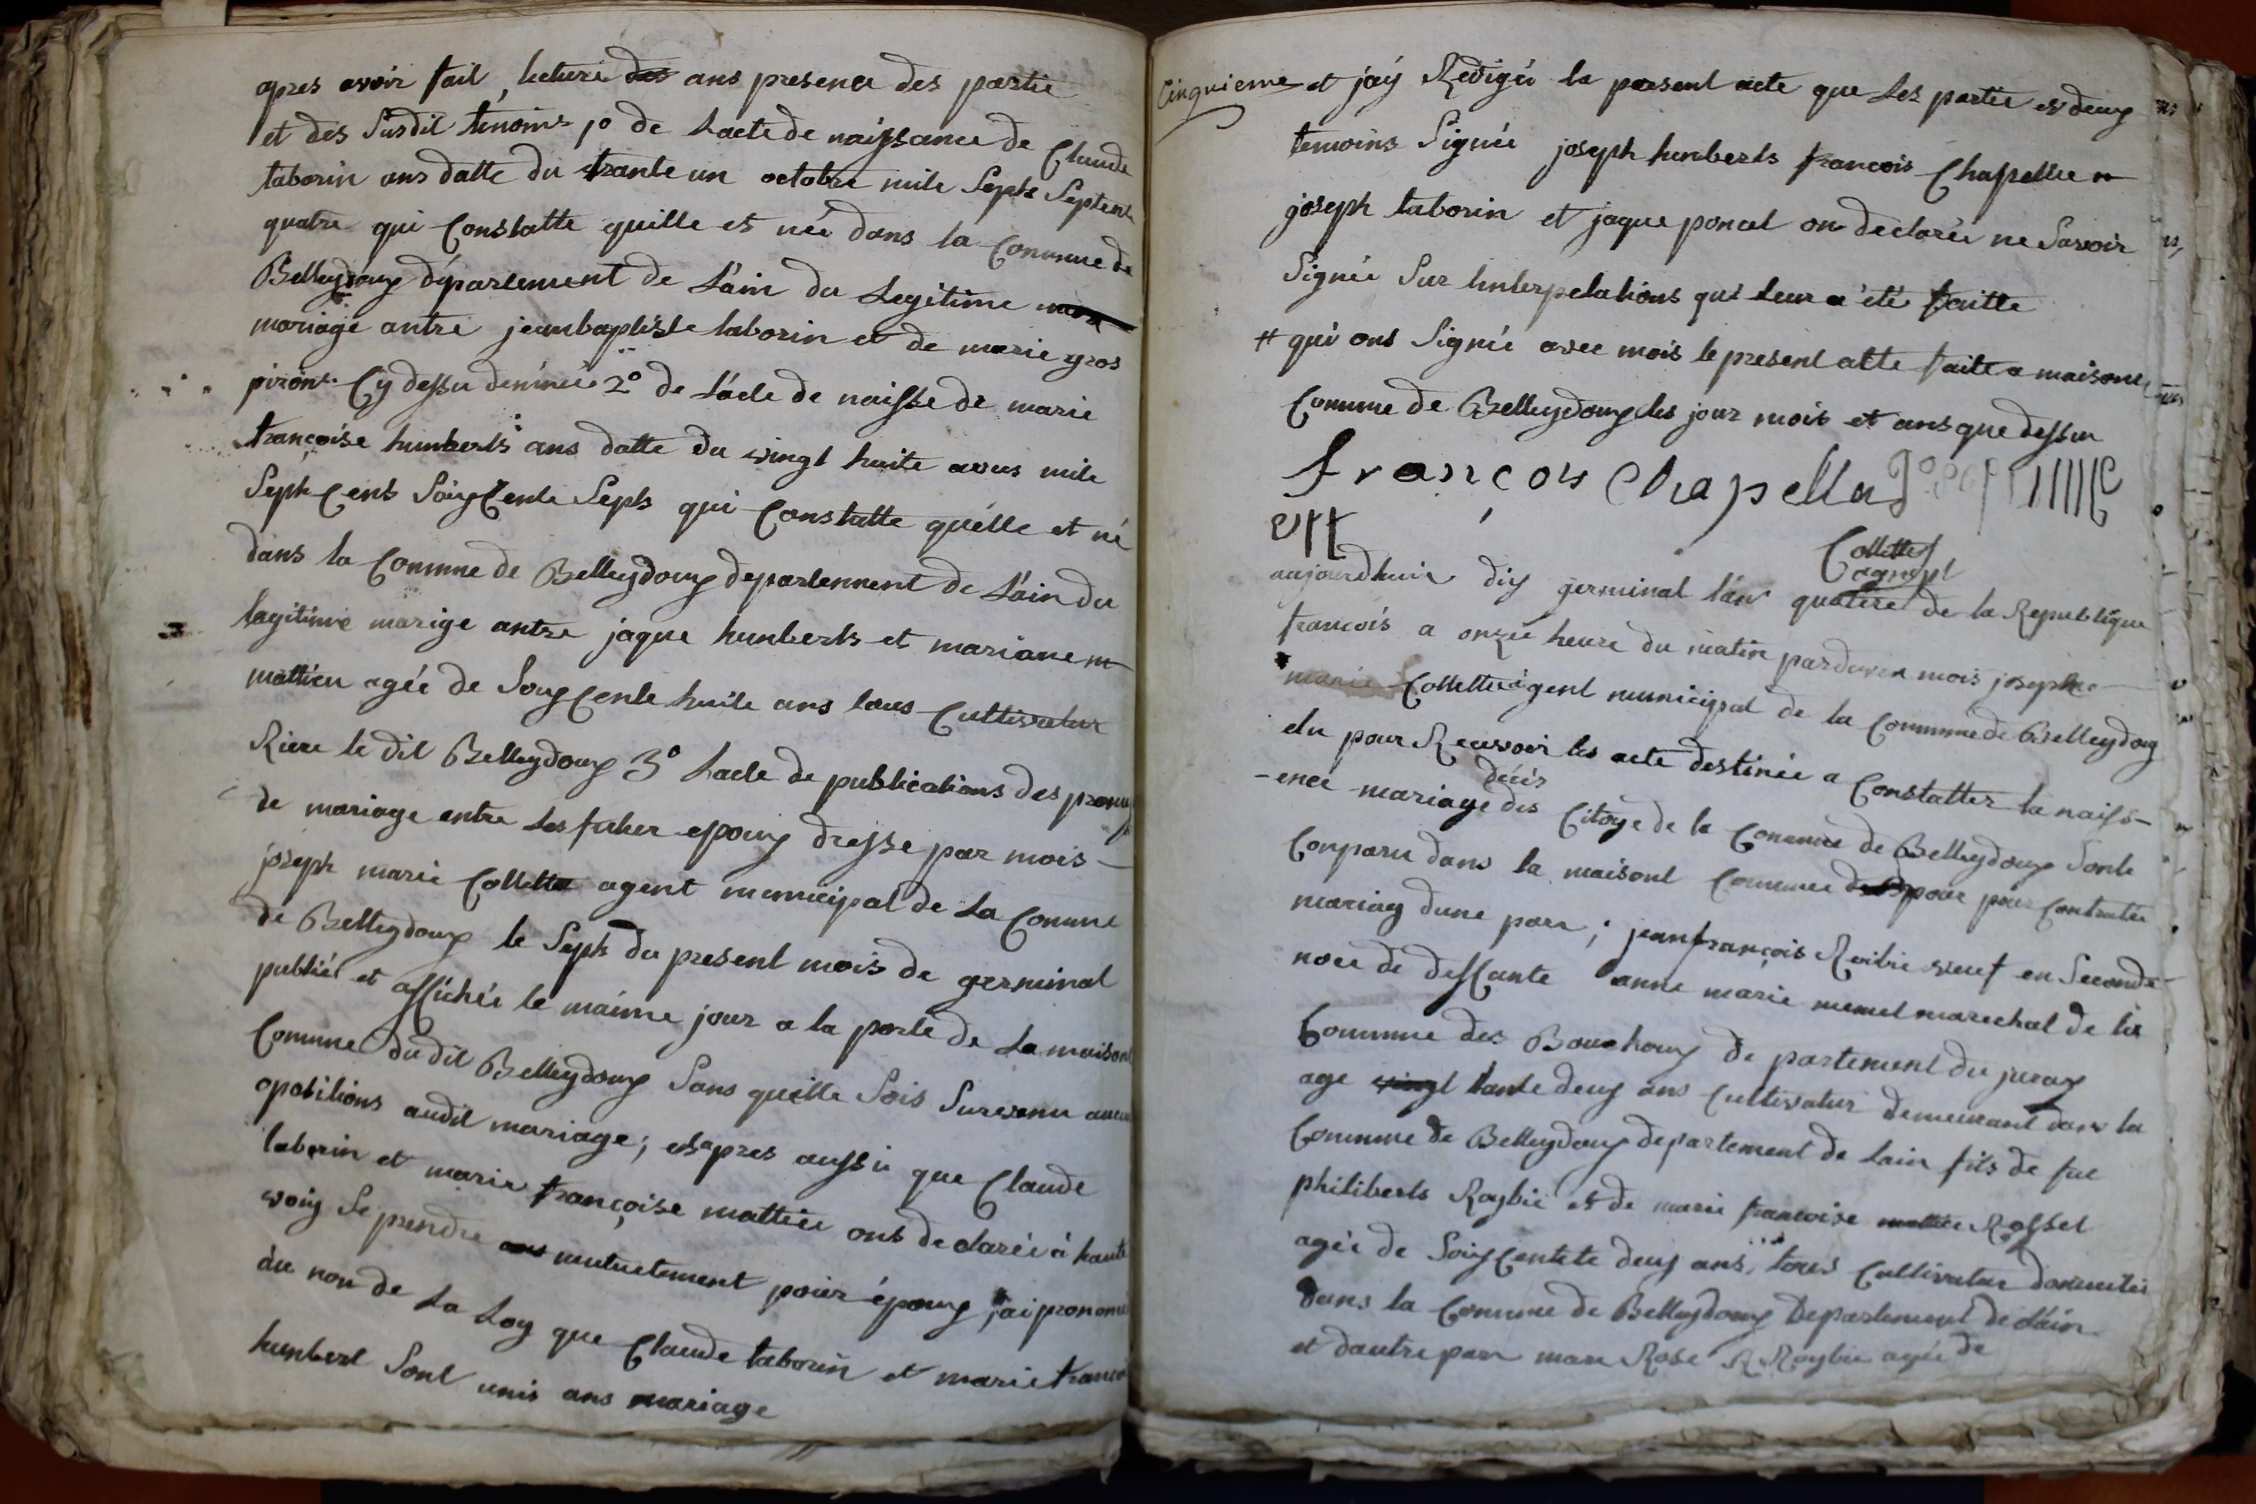 apres avoir fait, lecture des ans presence des partie
et des Susdit temoins 1o de Lacte de naissance de Claude
taborin ans datte du trante un octobre mile Sepht Septente
quatre qui Constatte quille es née dans la Commune de
Belleydoux département de L'ain du Legitime
mariage antre jeanbaptiste taborin et de marie gros
piront Cy dessu denmée 2o de L'acte de naisse de marie
françoise humberts ans datte du vingt huite aous mile
Seph Cens Soixcente Sephs qui Constatte quélle et né
dans la Commune de Belleydoux departement de L'ain du
lagitime marige antre jaque humberts et mariane m
mattieu agée de Soixcente huite ans tous Cultivateur
Riere le dit Belleydoux 3o Lacte de publications des prome
de mariage entre Les futher epoux dresse par mois
joseph marie Collette agent municipal de La Comune
de Belleydoux le Seph du present mois de germinal
publiée et affichée le maime jour a la porte de La maison
Comune du dit Belleydoux Sans quelle Sois Survenu aucun
opositions audit mariage; etapres aussi que Claude
taborin et marie françoise mattieu ons declarée à haute
voix Se prendre mutuelement pour époux j'ai prononce
du non de La Loy que Claude taborin et marie franco
humbert Sont unis ans mariage
Cinquieme et j'ay Redigée la present acte que Les partie es deux
temoins Signée joseph humberts francois Chapellu
joseph taborin et jaque poncet on declarée ne Savoir
Signée Sur linterpelations qui leur a été faitte
# qui ons Signée avec mois le present atte faite a maisone
Comune de Belleydoux les jour mois et ans que dessu
françois Chapellu
Collette
agent
aujourdhuir dix germinal l'an quatere de la Republique
francois a onzee heure du matin pardevan mois joseph
marie Collette agent municipal de la Commune de Belleydoux
elu pour Recevoir les acte destinée a Constatter la naiss-
décés
-ence mariage des Citoye de la Comune de Belleydoux Sonte
Comparu dans la maisont Commune pour contratée
mariag dune pare; jeanfrançois Reibie veuf en Seconde
noce de deffante anne marie mermet marechal de la
Commune des Bouchoux de partement du juray
age vingt tante deux ans Cultivatur demeurant dans la
Commune de Belleydoux departement de Lain fils de fue
philiberts Raybié et de marie francoise mattieu Rossel
agée de Soixcentete deux ans, tous Cultivatur domicilée
dans la Comune de Belleydoux Departement de L'ain
et dautre pare mare Rose R Raybie agée de